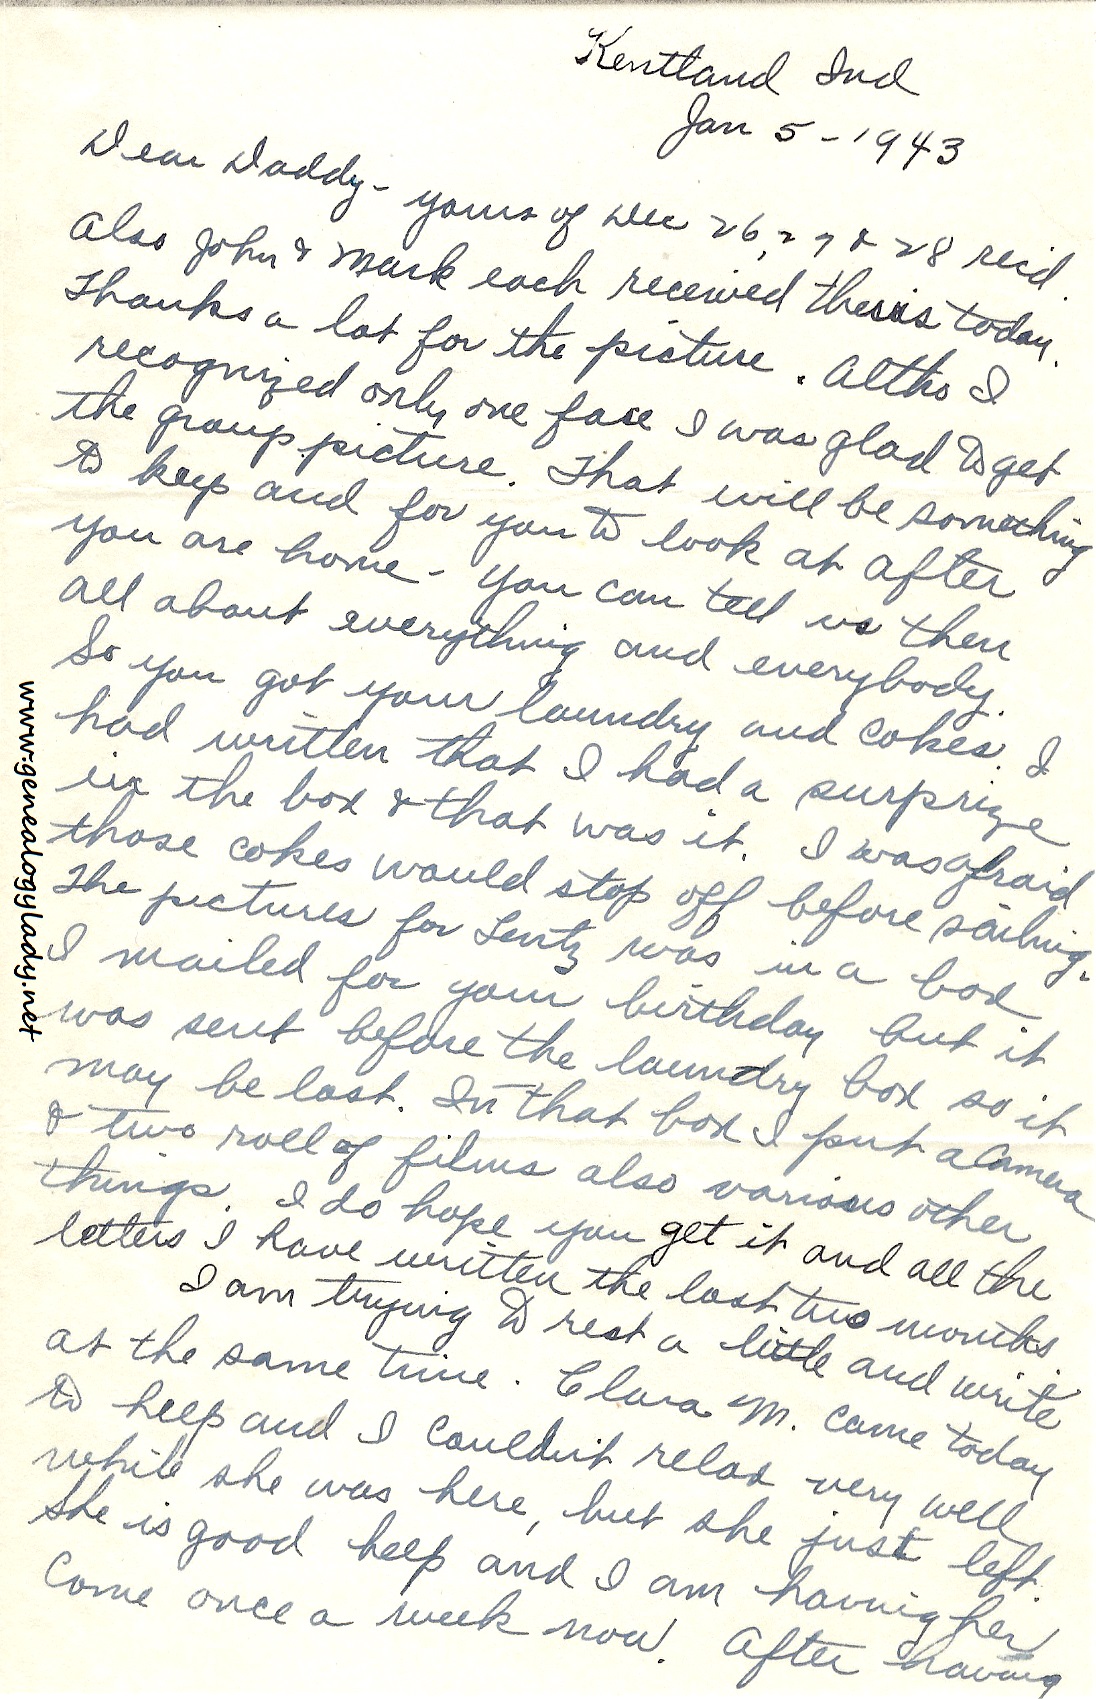 Kentland Ind
Jan 5 - 1943
Dear Daddy - yours of Dec 26, 27 & 28 rec'd.
Also John & Mark each received theirs today.
Thanks a lot for the picture. Altho I
recognized only one face I was glad to get
the group picture. That will be something
to keep and for you to look at after
you are home - you can tell us then
all about everything and everybody.
So you got your laundry and cokes. I
had written that I had a surprize
in the box & that was it. I was afraid
those cokes would stop off before sailing.
The pictures for Lentz was in a box
I mailed for your birthday but it
was sent before the laundry box so it
may be lost. In that box I put a camera
& two roll of films also various other
things. I do hope you get it and all the
letters I have written the last two months.
I am trying to rest a little and write
at the same time. Clara M. came today
to help and I couldn't relax very well
while she was here, but she just left.
She is good help and I am having her
come once a week now. After having
www.genealogylady.net